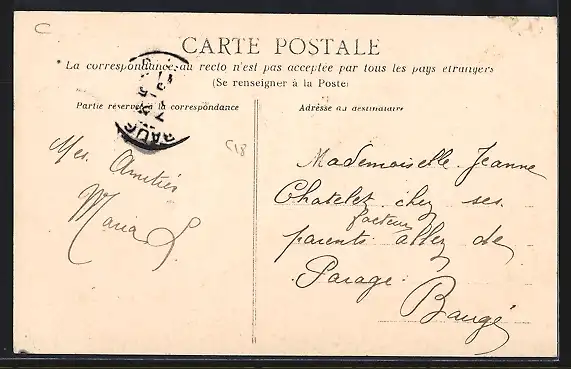 C
CARTE POSTALE
La correspondance au recto n'est pas acceptée par tous les pays étrangers
(Se renseigner à la Poste)
Partie réservée à la correspondance
Adresse du destinataire
BAUG
C18
Mes Amitiés
Maria S.
Mademoiselle Jeanne
Chatelet chez ses
facteur
parents allez de
Parage
Baugé